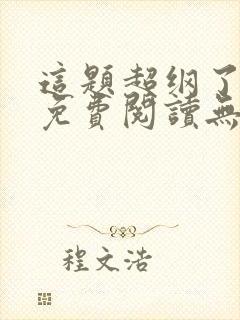 這題超纲了
免費閱讀無
程文浩